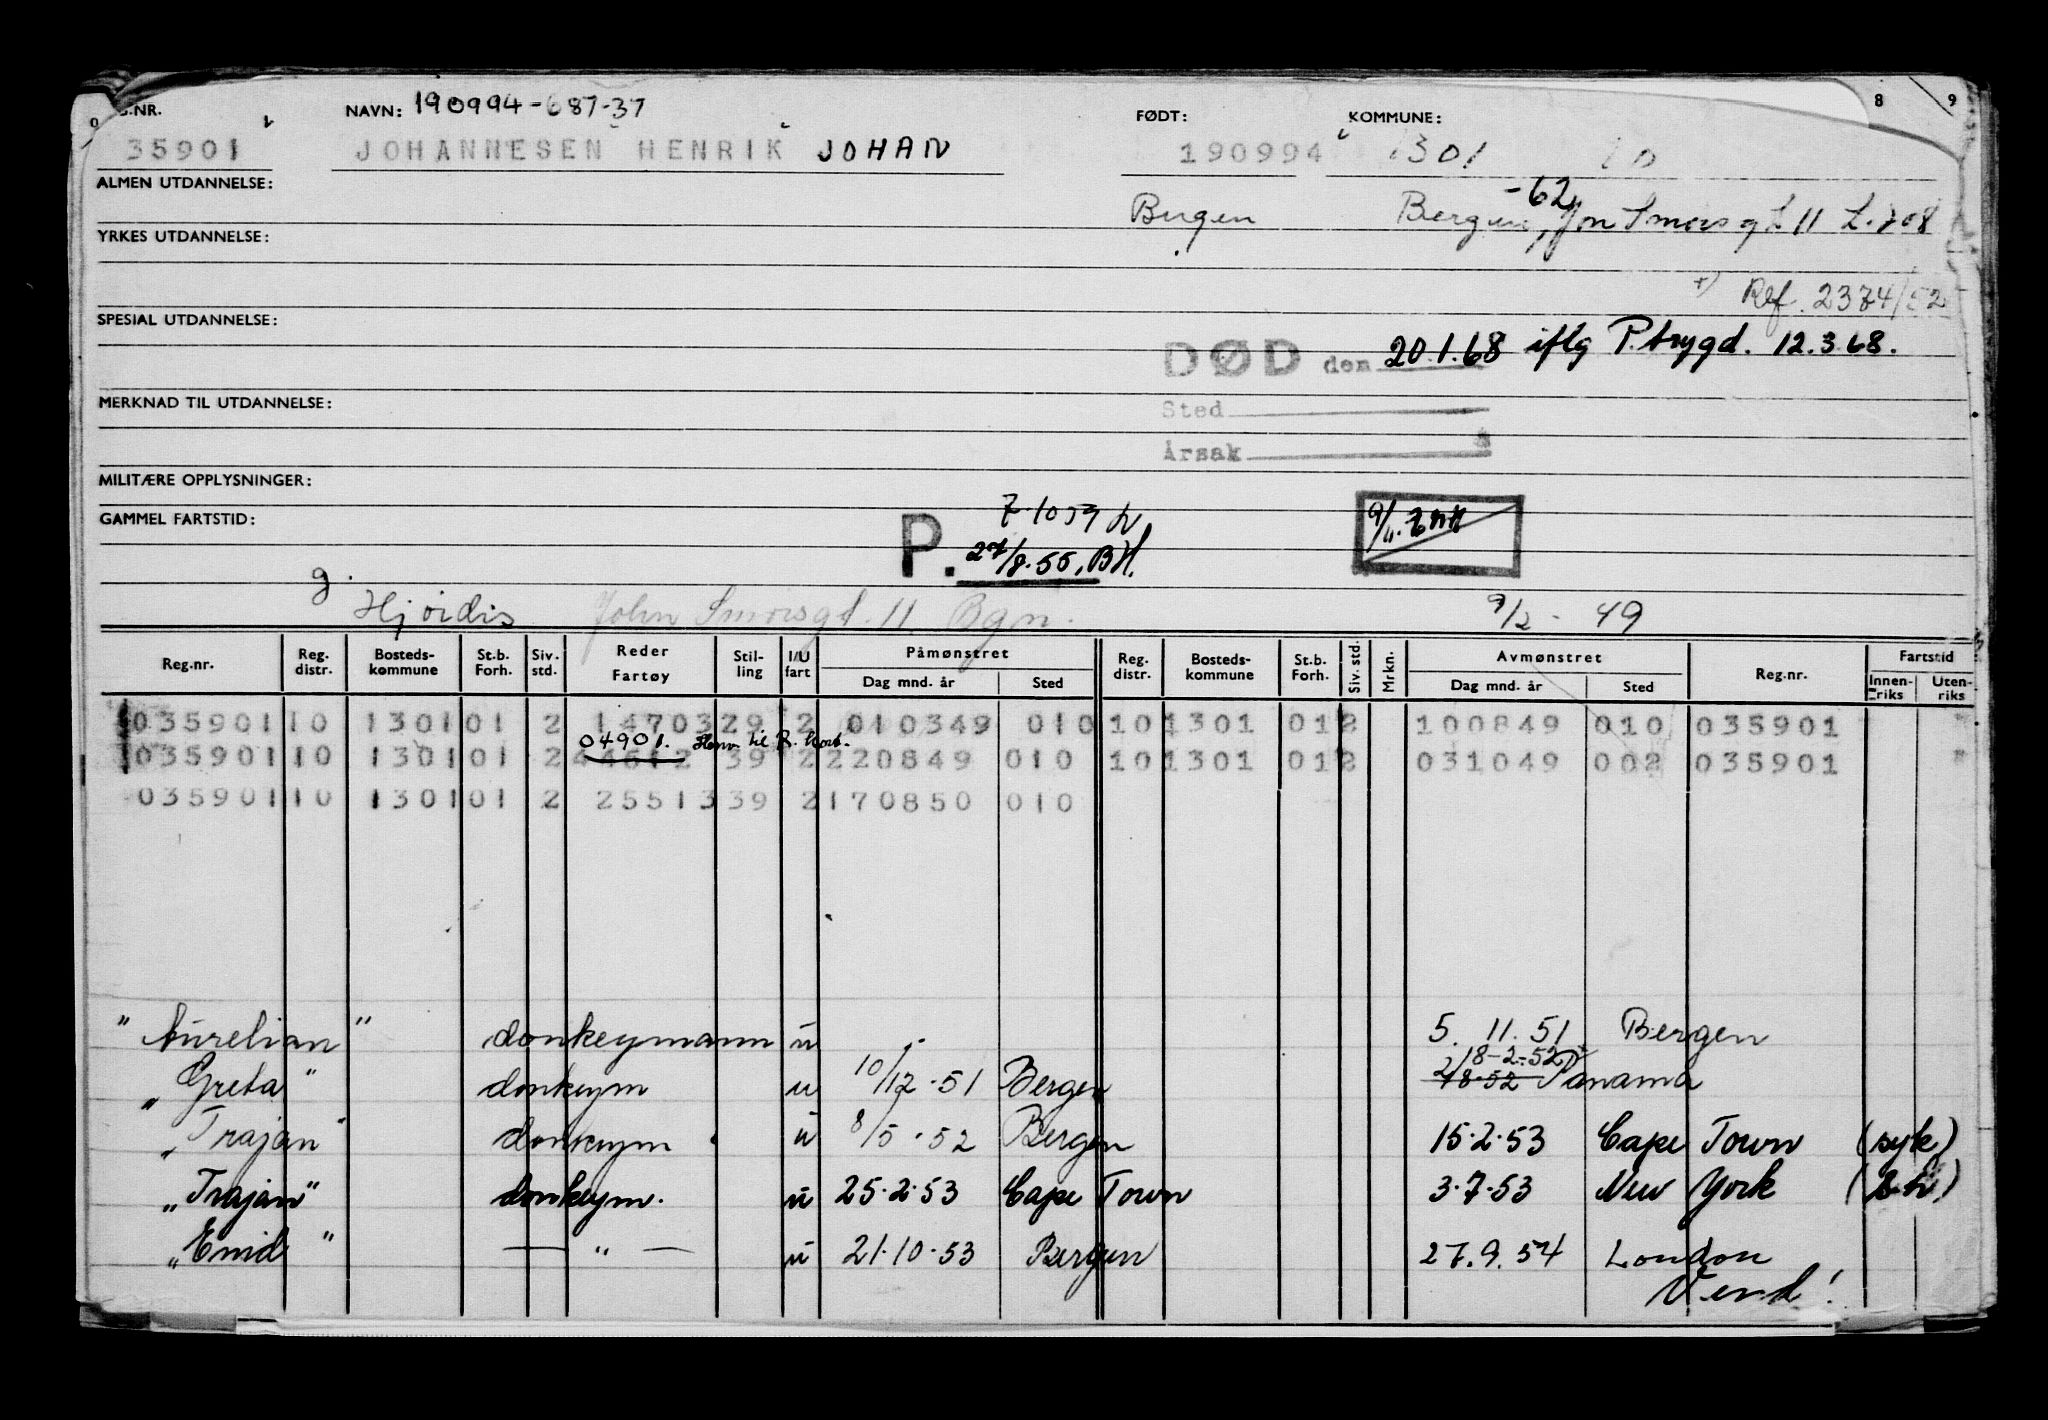 S.NR. NAVN: 190994-687-37 FØDT: KOMMUNE: 8 9
35901 JOHANNESEN HENRIK JOHAN 190994 1301 10
ALMEN UTDANNELSE:
Bergen Bergen, -62 Jon Smørsgt 11 L.708
YRKES UTDANNELSE:
Ref. 2374/52
SPESIAL UTDANNELSE:
DØD den 20.1.68 iflg P.trygd. 12.3.68.
MERKNAD TIL UTDANNELSE:
Sted
Årsak
MILITÆRE OPPLYSNINGER:
GAMMEL FARTSTID:
P. 27/8.55. BH.
g. Hjørdis John Smørsgt. 11 Bgn. 9/2 - 49
Reg.nr. Reg. distr. Bosteds-kommune St.b. Forh. Siv. std. Reder Fartøy Stil-ling I/U fart Påmønstret Dag mnd. år Sted Reg. distr. Bosteds-kommune St.b. Forh. Siv. std. Mrkn. Avmønstret Dag mnd. år Sted Reg.nr. Fartstid Innen-riks Uten-riks
035901 10 1301 01 2 14703 29 2 010349 010 10 1301 01 2 100849 010 035901
04901. Henv. til R. kort.
035901 10 1301 01 2 44612 39 2 220849 010 10 1301 01 2 031049 002 035901
035901 10 1301 01 2 25513 39 2 170850 010
"Aurelian" donkeymann u 5. 11. 51 Bergen
18-2-52
"Greta" donkeym u 10/12.51 Bergen Panama
"Trajan" donkeym u 8/5.52 Bergen 15.2.53 Cape Town (syk)
"Trajan" donkeym. u 25.2.53 Cape Town 3.7.53 New York
"Enid" — " — u 21.10.53 Bergen 27.9.54 London
Vend!